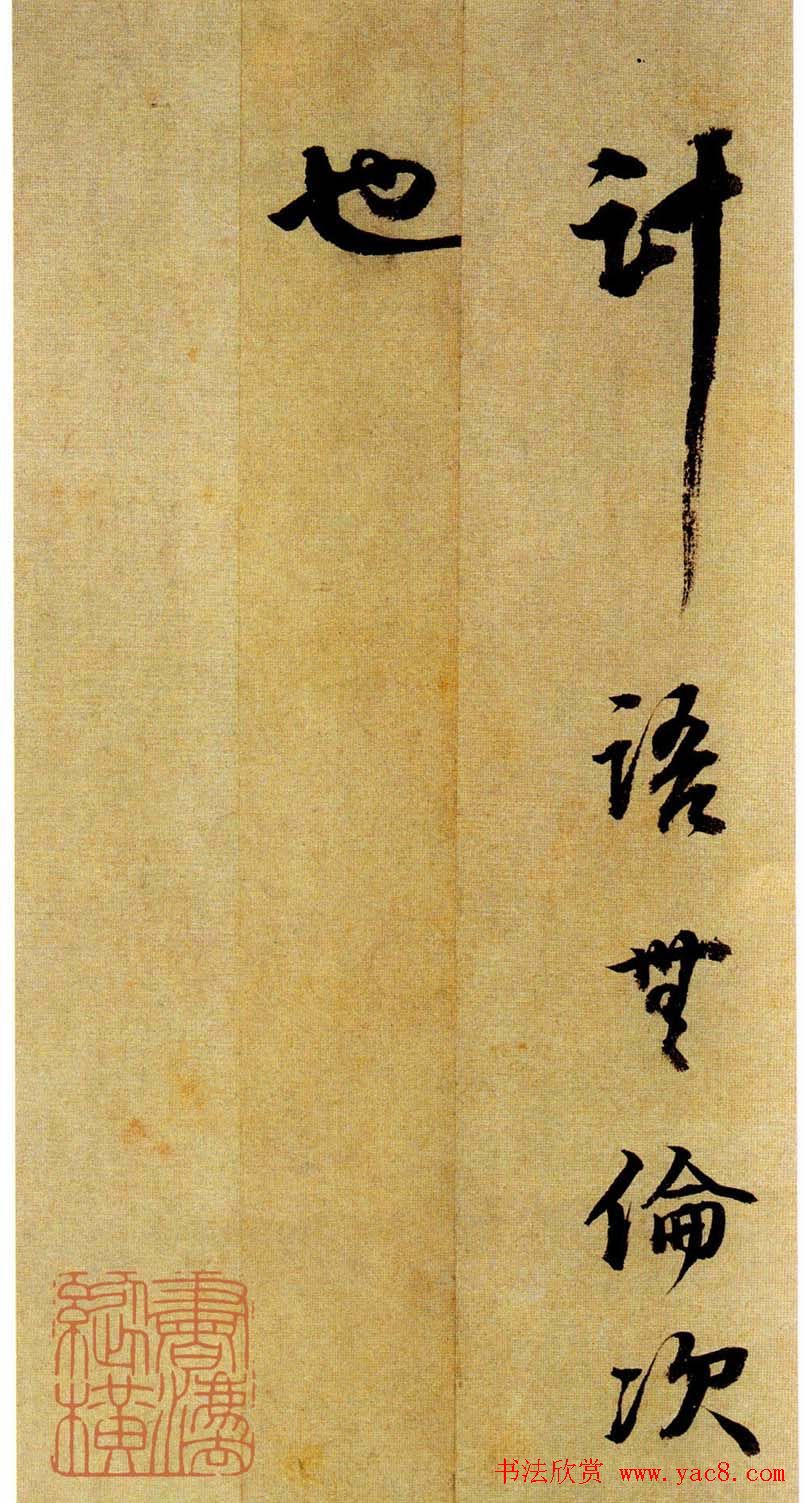 計語無倫次
也
書法欣赏 www.yac8.com